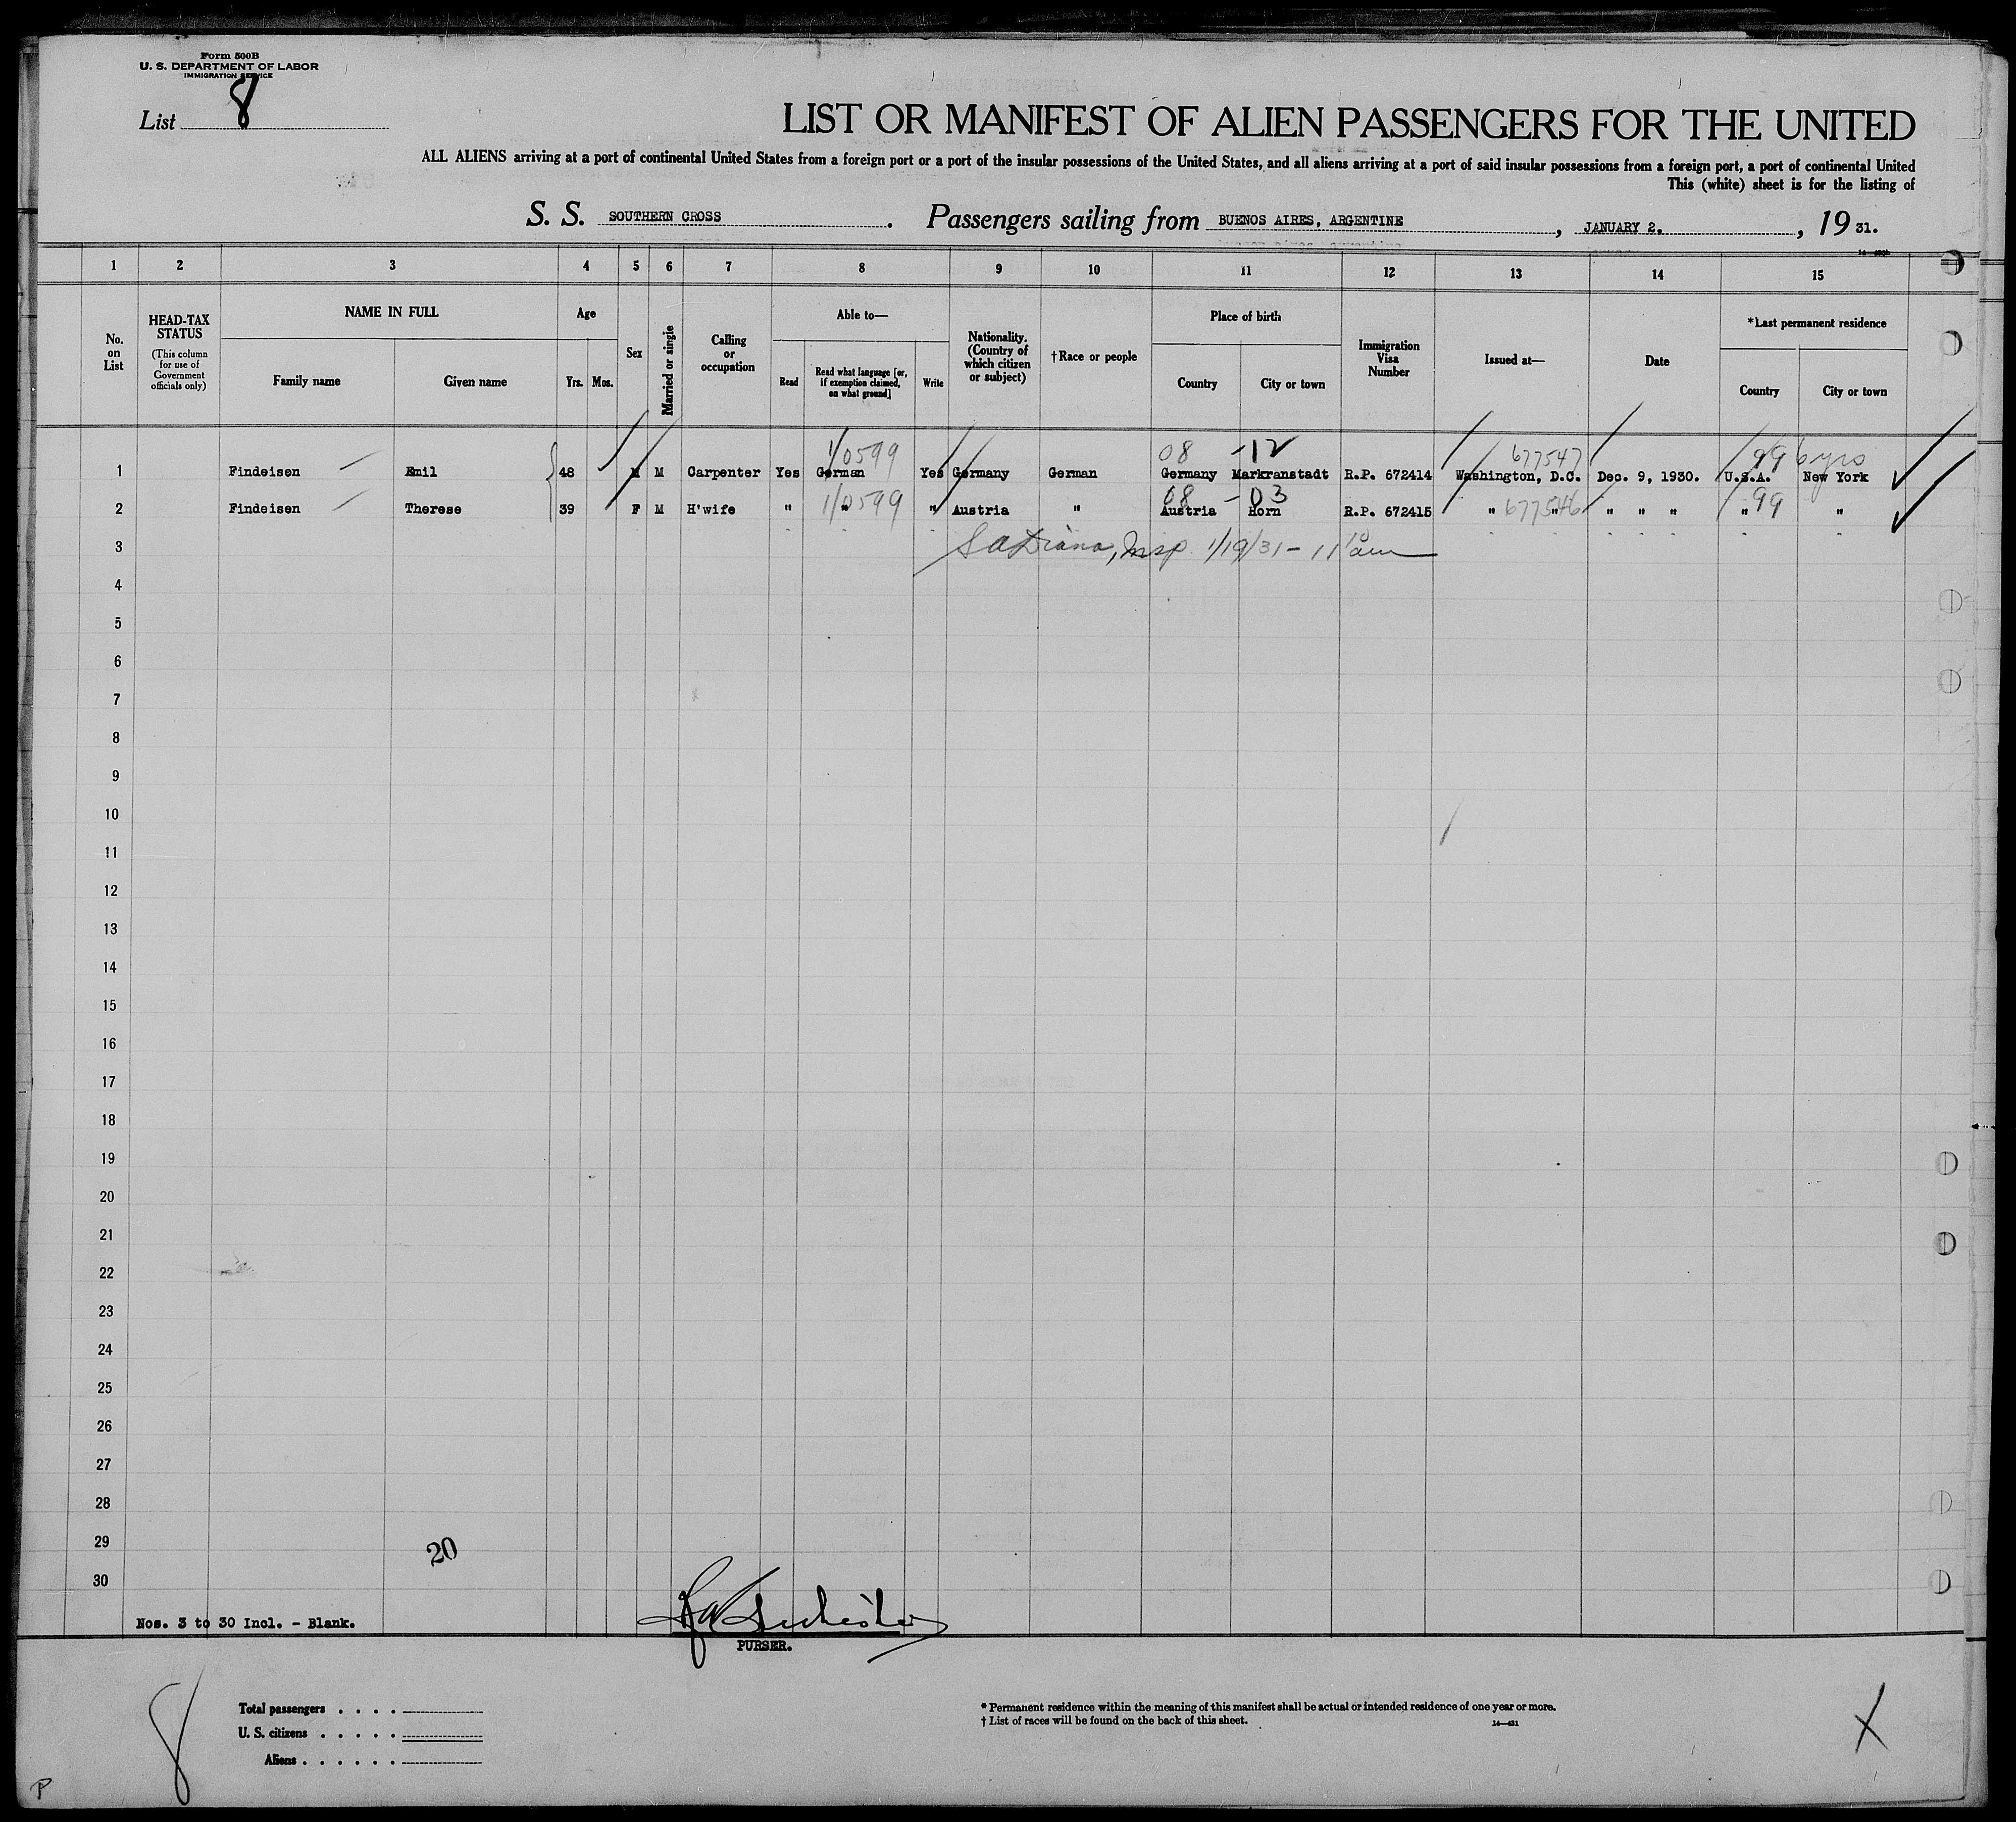 Form 500B
U. S. DEPARTMENT OF LABOR
IMMIGRATION SERVICE
List 8
LIST OR MANIFEST OF ALIEN PASSENGERS FOR THE UNITED
ALL ALIENS arriving at a port of continental United States from a foreign port or a port of the insular possessions of the United States, and all aliens arriving at a port of said insular possessions from a foreign port, a port of continental United
This (white) sheet is for the listing of
S. S. SOUTHERN CROSS. Passengers sailing from BUENOS AIRES, ARGENTINE, JANUARY 2., 1931.
1 2 3 4 5 6 7 8 9 10 11 12 13 14 15
No. on List
HEAD-TAX STATUS
(This column for use of Government officials only)
NAME IN FULL
Family name
Given name
Age
Yrs. Mos.
Sex
Married or single
Calling or occupation
Able to—
Read
Read what language [or, if exemption claimed, on what ground]
Write
Nationality. (Country of which citizen or subject)
†Race or people
Place of birth
Country
City or town
Immigration Visa Number
Issued at—
Date
*Last permanent residence
Country
City or town
1/0599 08 -12 677547 99 6 yrs
1 Findeisen Emil 48 M M Carpenter Yes German Yes Germany German Germany Markranstadt R.P. 672414 Washington, D.C. Dec. 9, 1930. U.S.A. New York
1/0599 08 - 03 677546 99
2 Findeisen Therese 39 F M H'wife " " " Austria " Austria Horn R.P. 672415 " " " " " " "
3 Insp 1/19/31 - 11 10 am
4
5
6
7
8
9
10
11
12
13
14
15
16
17
18
19
20
21
22
23
24
25
26
27
28
29
20
30
Nos. 3 to 30 Incl. - Blank.
PURSER.
8
Total passengers . . . .
U. S. citizens . . . . .
Aliens . . . . . .
* Permanent residence within the meaning of this manifest shall be actual or intended residence of one year or more.
† List of races will be found on the back of this sheet.
14—431
X
P